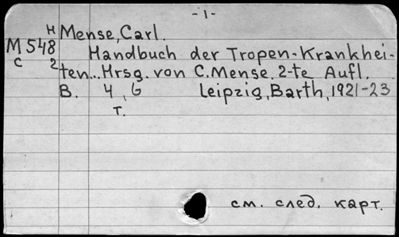 - 1 -
H Mense, Carl.
M 548 Handbuch der Tropen-Krankhei-
C 2 ten... Hrsg. von C. Mense. 2-te Aufl.
B. 4, G Leipzig, Barth, 1921-23
T.
см. след. карт.